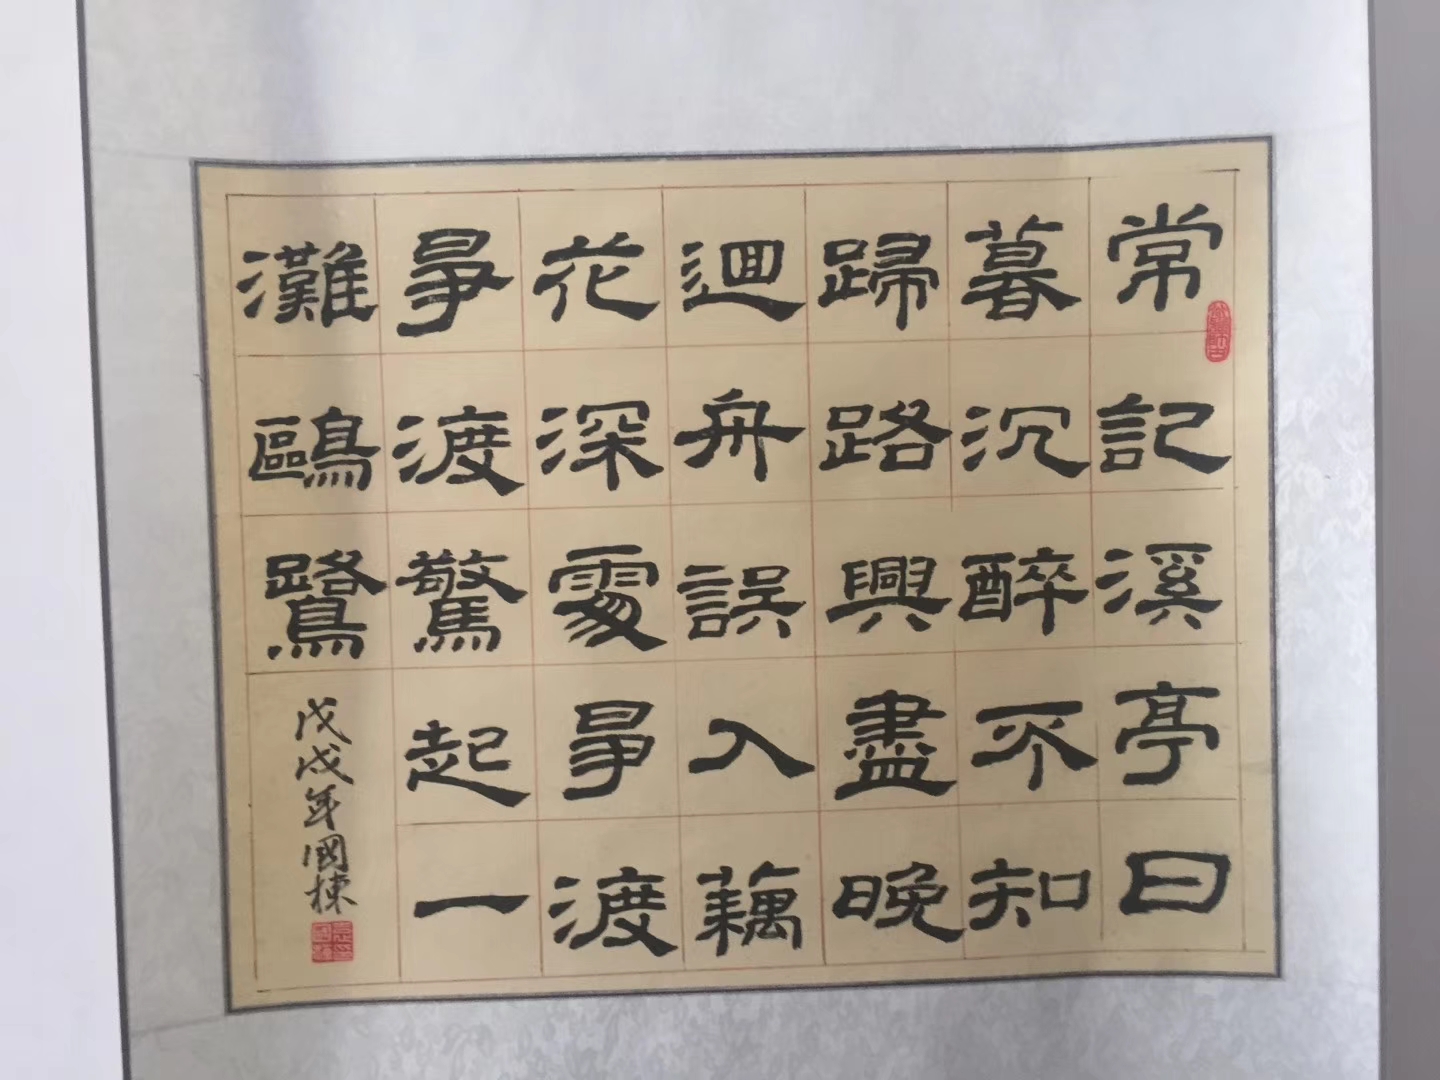 常記溪亭日
暮沉醉不知
歸路興盡晚
迴舟誤入藕
花深處爭渡
爭渡驚起一
灘鷗鷺
戊戌年國棟